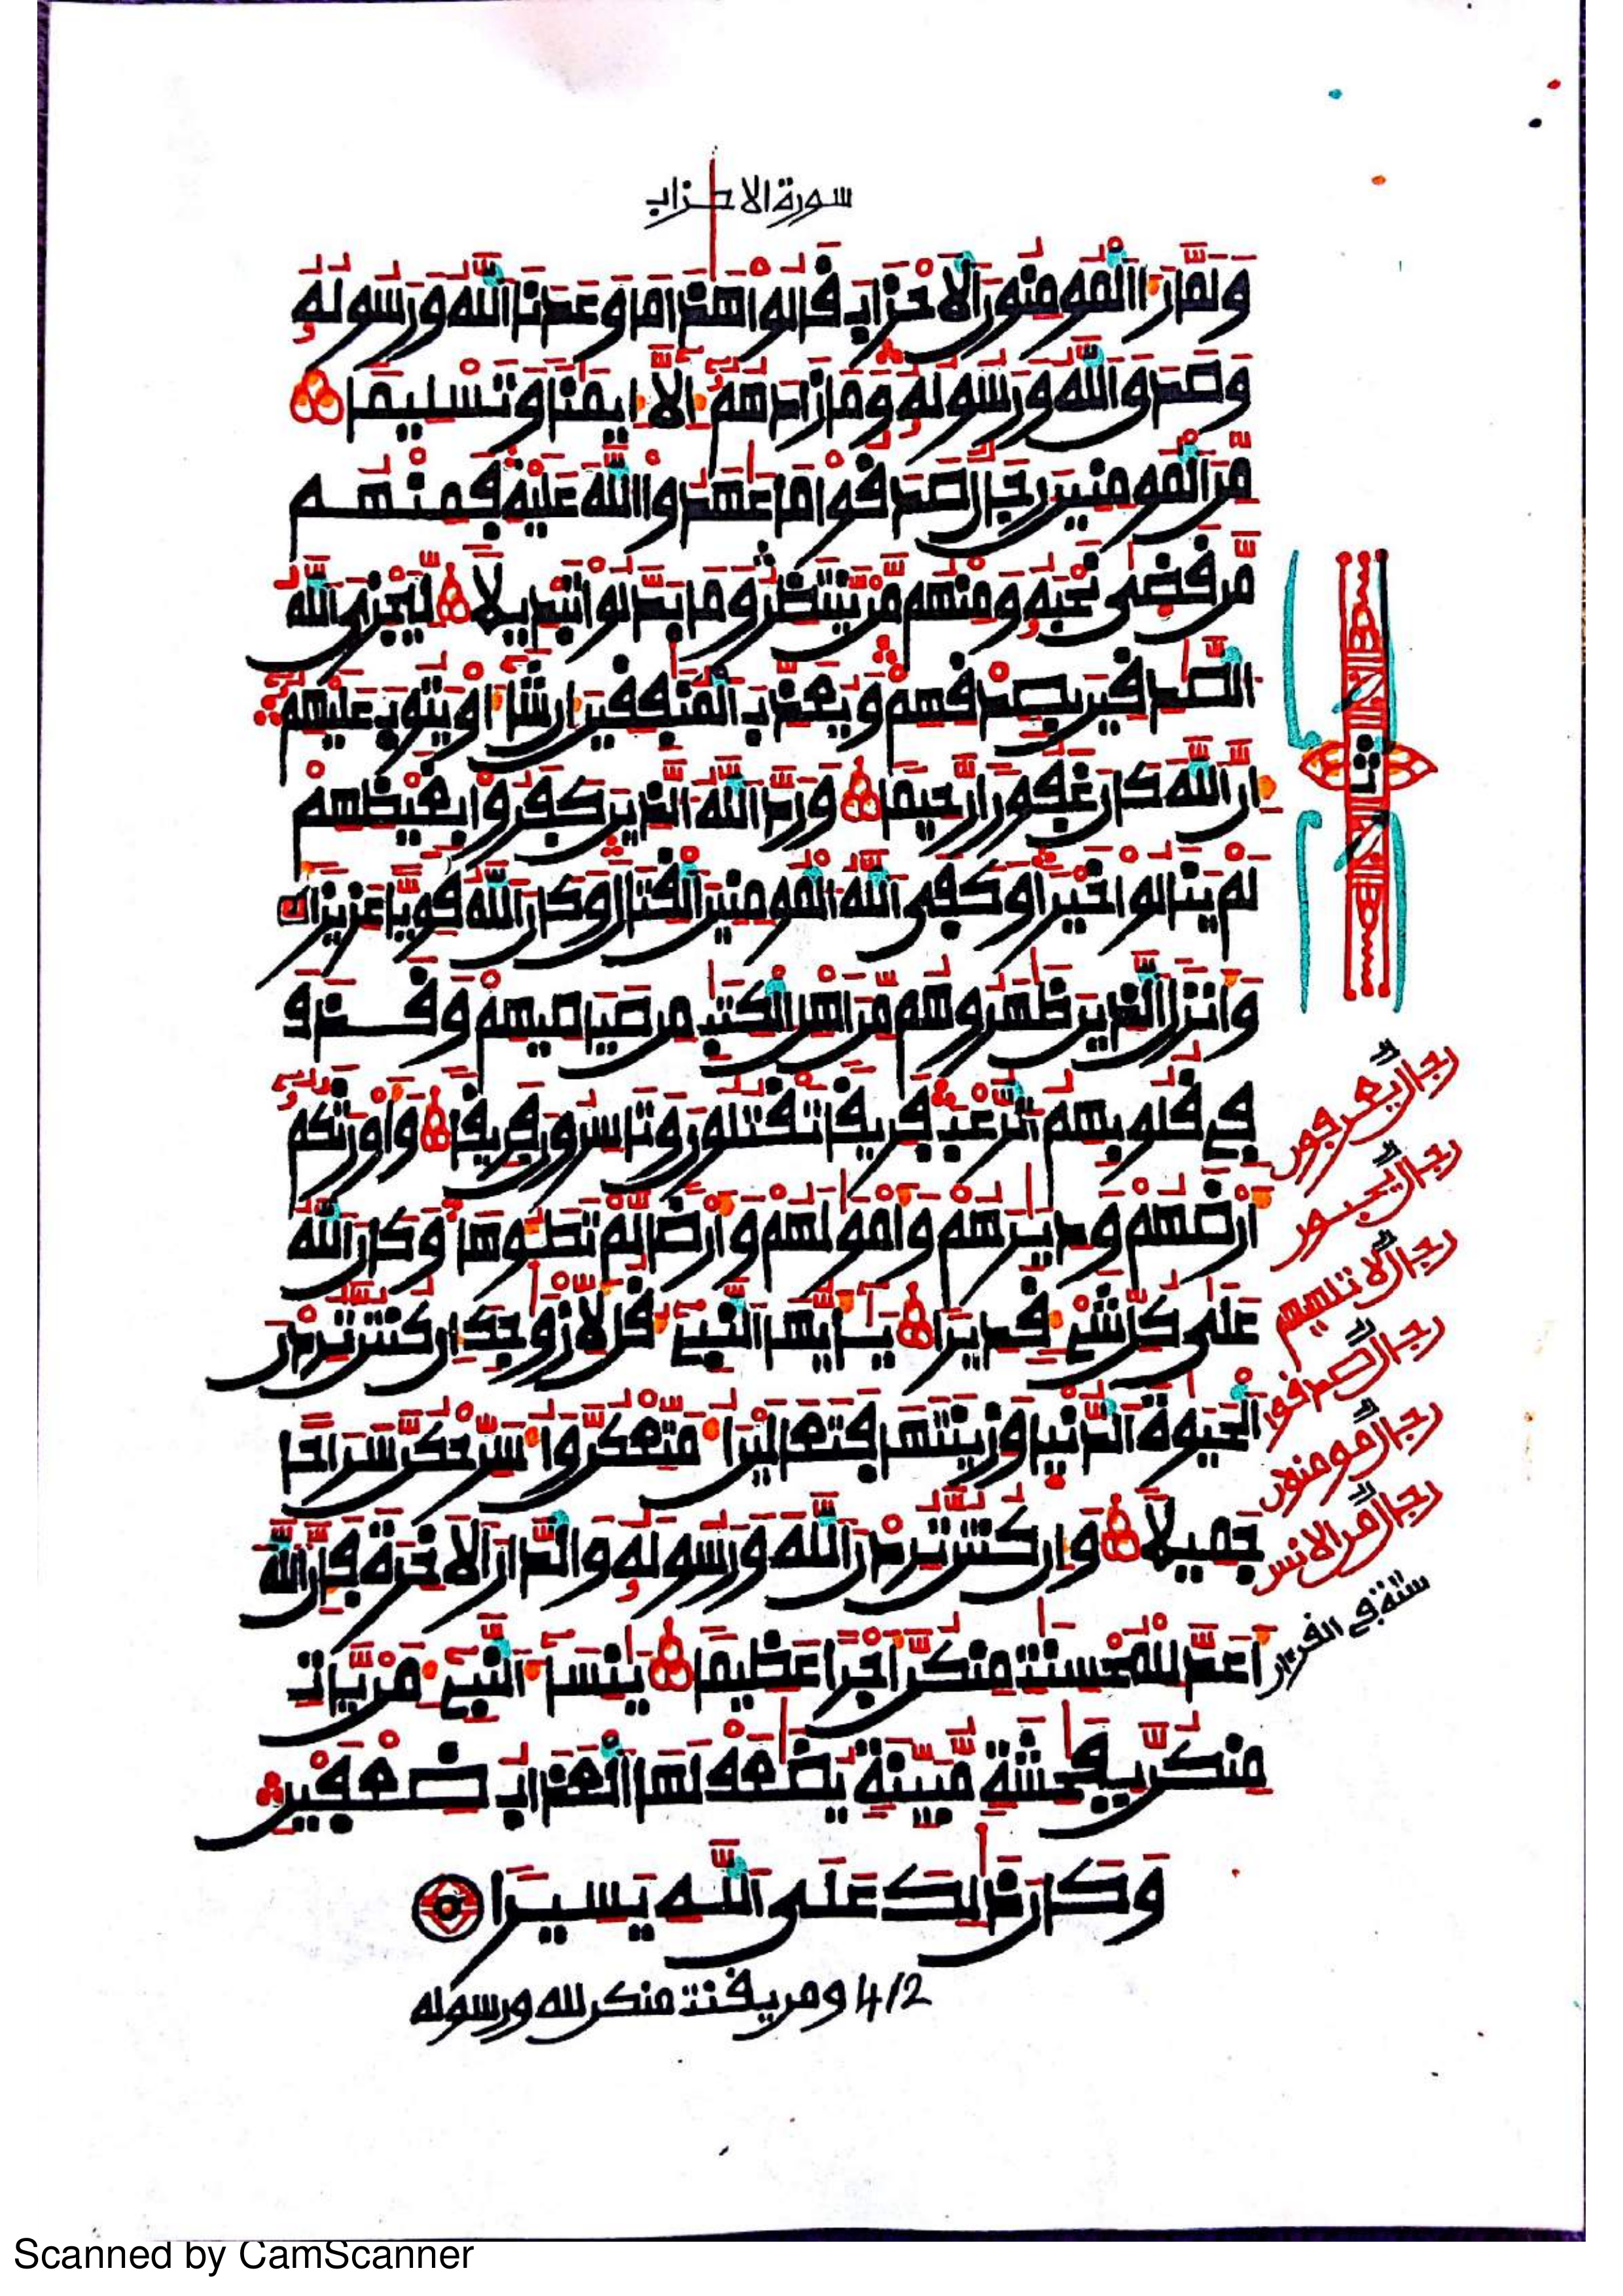 سورة الاحزاب
وَلَمَّا رَءَا اَلْمُومِنُونَ اَلَاحْزَابَ قَالُواْ هَٰذَا مَا وَعَدَنَا اَللَّهُ وَرَسُولُهُۥ
وَصَدَقَ اَللَّهُ وَرَسُولُهُۥ وَمَا زَادَهُمُۥٓ إِلَّآ إِيمَٰنا وَتَسْلِيما
مِّنَ اَلْمُومِنِينَ رِجَال صَدَقُواْ مَا عَٰهَدُواْ اُللَّهَ عَلَيْهِ فَمِنْهُم
مَّن قَضَىٰ نَحْبَهُۥ وَمِنْهُم مَّنْ يَّنتَظِرُ وَمَا بَدَّلُواْ تَبْدِيلا لِّيَجْزِيَ اَللَّهُ
اُلصَّٰدِقِينَ بِصِدْقِهِمْ وَيُعَذِّبَ اَلْمُنَٰفِقِينَ إِن شَآءَ اَوْ يَتُوبَ عَلَيْهِمُۥٓ
إِنَّ اَللَّهَ كَانَ غَفُورا رَّحِيما وَرَدَّ اَللَّهُ اُلذِينَ كَفَرُواْ بِغَيْظِهِمْ
لَمْ يَنَالُواْ خَيْرا وَكَفَى اَللَّهُ اُلْمُومِنِينَ اَلْقِتَالَ وَكَانَ اَللَّهُ قَوِيّاً عَزِيزا
وَأَنزَلَ اَلذِينَ ظَٰهَرُوهُم مِّنَ اَهْلِ اِلْكِتَٰبِ مِن صَيَاصِيهِمْ وَقَذَفَ
فِي قُلُوبِهِمُ اُلرُّعْبَ فَرِيقا تَقْتُلُونَ وَتَاسِرُونَ فَرِيقا وَأَوْرَثَكُمُۥٓ
أَرْضَهُمْ وَدِيَٰرَهُمْ وَأَمْوَٰلَهُمْ وَأَرْضا لَّمْ تَطَـُٔوهَا وَكَانَ اَللَّهُ
عَلَىٰ كُلِّ شَےْءٖ قَدِيرا يَٰٓأَيُّهَا اَلنَّبِےٓءُ قُل لِّأَزْوَٰجِكَ إِن كُنتُنَّ تُرِدْنَ
اَلْحَيَوٰةَ اَلدُّنْيا وَزِينَتَهَا فَتَعَالَيْنَ أُمَتِّعْكُنَّ وَأُسَرِّحْكُنَّ سَرَاحا
جَمِيلا وَإِن كُنتُنَّ تُرِدْنَ اَللَّهَ وَرَسُولَهُۥ وَالدَّارَ اَلَاخِرَةَ فَإِنَّ اَللَّهَ
أَعَدَّ لِلْمُحْسِنَٰتِ مِنكُنَّ أَجْراً عَظِيما يَٰنِسَآءَ اَلنَّبِےٓءِ مَنْ يَّاتِ
مِنكُنَّ بِفَٰحِشَةٖ مُّبَيِّنَةٖ يُضَٰعَفْ لَهَا اَلْعَذَابُ ضِعْفَيْنِ
وَكَانَ ذَٰلِكَ عَلَى اَللَّهِ يَسِيرا
4/2 ومن يقنت منكن لله ورسوله
ثمن
رجال يعرفون
رجال يحبون
رجال لا تلهيهم
رجال صدقوا
رجال مومنون
رجال من الانس
ستة في القرءان
Scanned by CamScanner